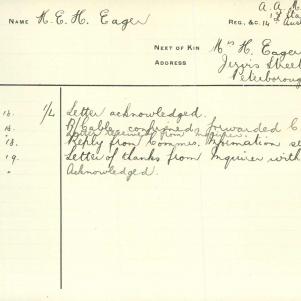 A. A.
NAME H. E. H. Eager REG., &C. 14
NEXT OF KIN Mrs H. Eager
ADDRESS Jervis Street
Peterborough
16. 1/L Letter acknowledged.
16. R/Cable confirmed, forwarded C
Acknowledgement from inquirer.
18. Reply from Commrs. Information se
19. Letter of thanks from Inquirer with
" Acknowledged.